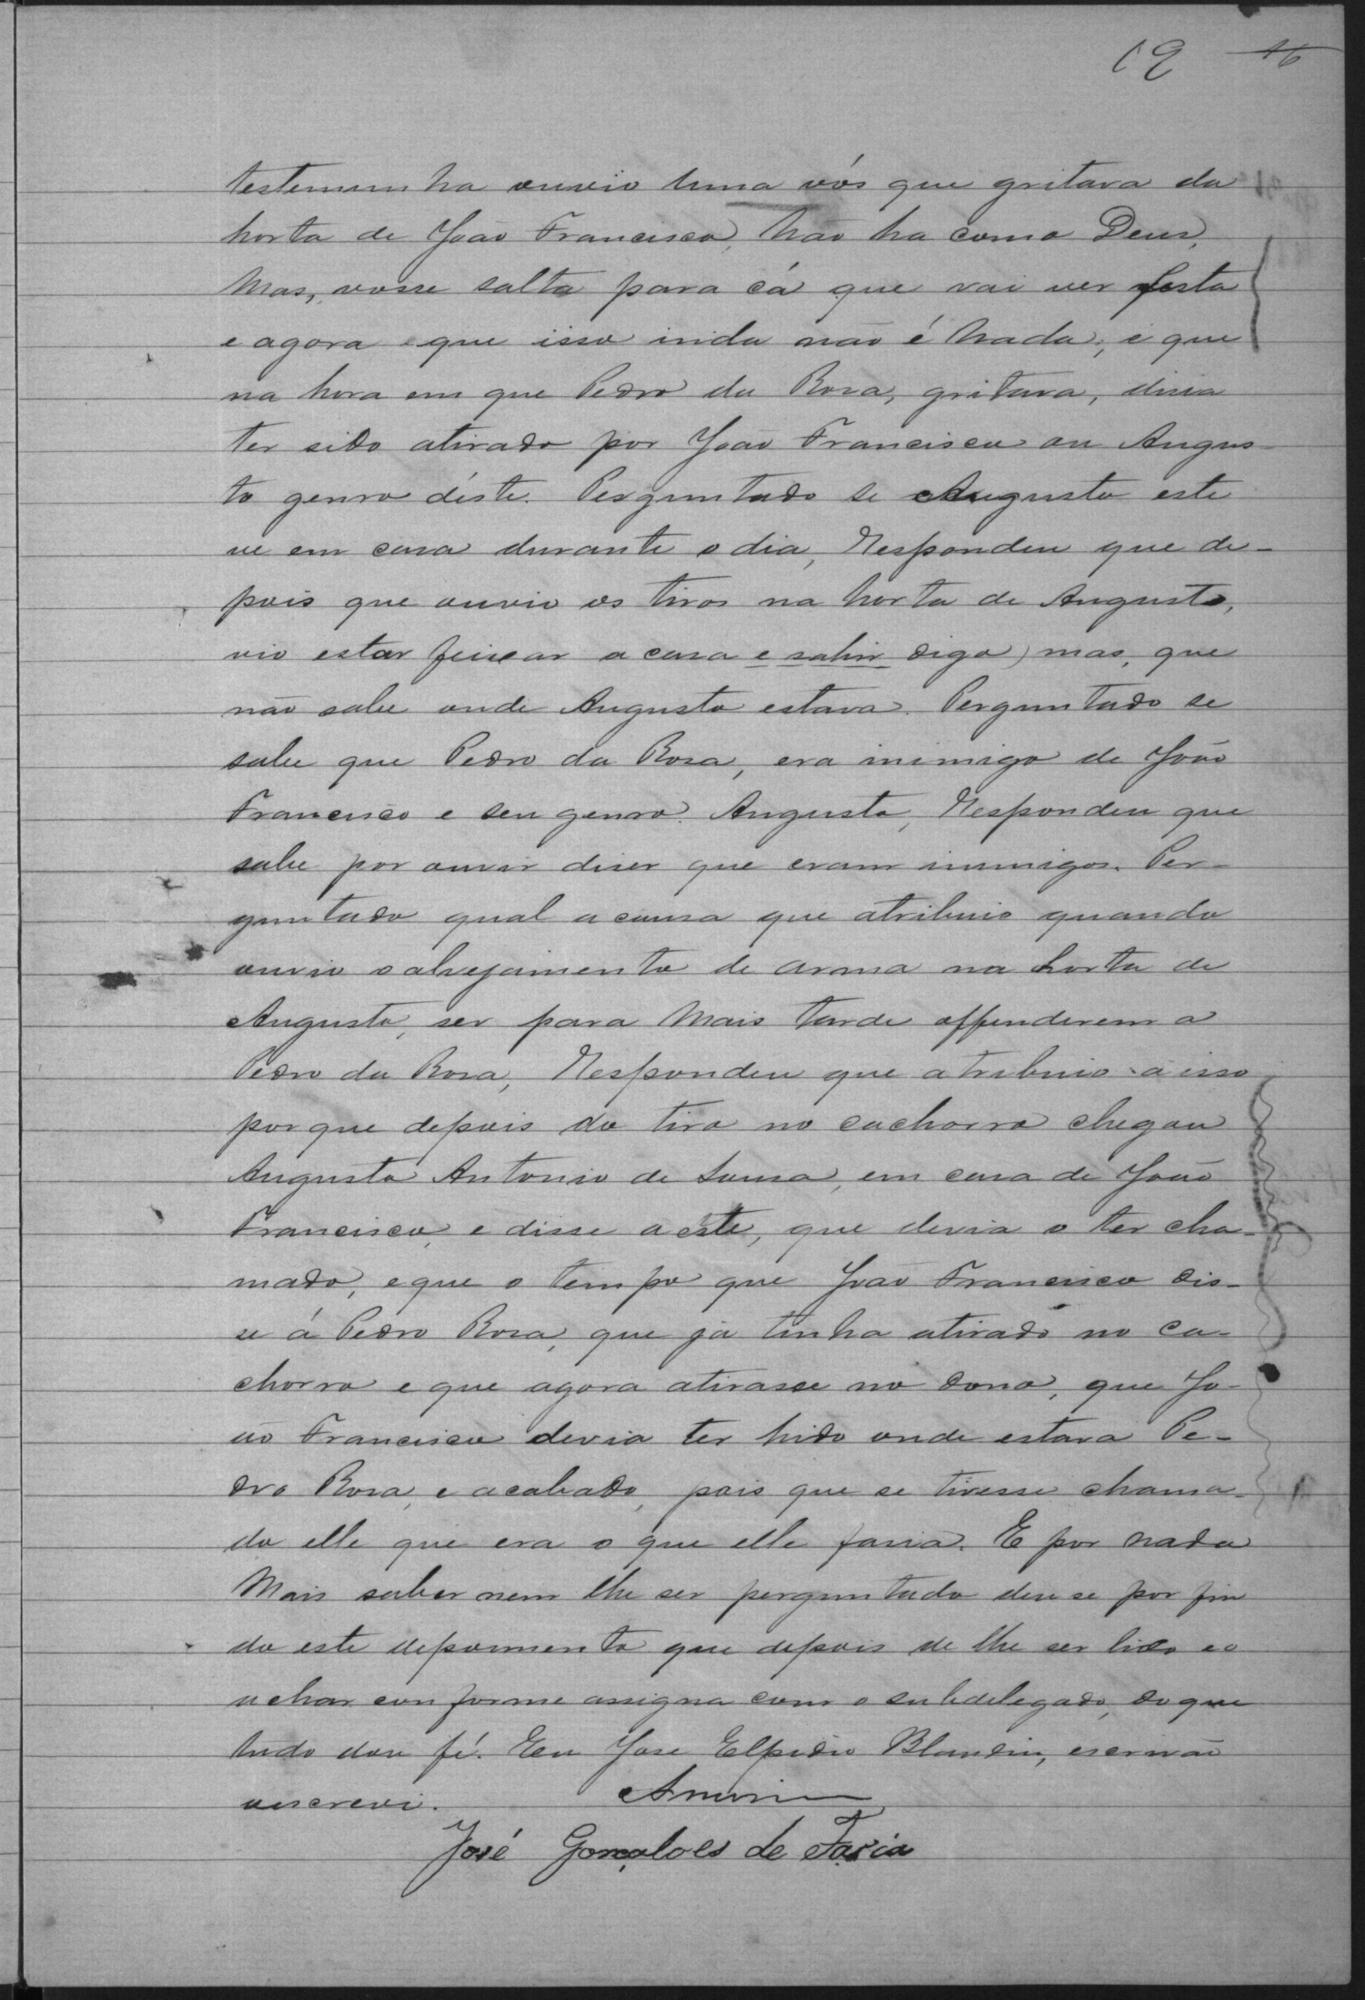 19 16
testemunha ouvio huma vós que gritava da
horta de João Francisco, não ha como Deus,
Mas, vosse salta para cá que vai ver festa
e agora que isso inda não é nada, e que
na hora em que Pedro da Rosa, gritava, disia
ter sido atirado por João Francisco ou Augus-
to genro déste. Perguntado se Augusto este
ve em casa durante o dia, Respondeu que de-
pois que ouvio os tiros na horta de Augusto,
vio estar feixar a casa e sahir digo) mas, que
não sabe onde Augusto estava. Perguntado se
sabe que Pedro da Rosa, era inimigo de João
Francisco e seu genro Augusto, Respondeu que
sabe por ouvir diser que eram inimigos. Per-
guntado qual a causa que atribuio quando
ouvio o alvejamento de arma na horta de
Augusto, ser para Mais tarde offenderem a
Pedro da Rosa, Respondeu que atribuio a isso
por que depois do tiro no cachorro chegou
Augusto Antonio de Sousa, em casa de João
Francisco, e disse a este, que devia o ter cha-
mado, e que o tempo que João Francisco dis-
se á Pedro Rosa, que já tinha atirado no ca-
chorro e que agora atirasse no dono, que Jo-
ão Francisco devia ter hido onde estava Pe-
dro Rosa, e acabado, pois que se tivesse chama-
do elle que era o que elle faria. E por nada
Mais saber nem lhe ser perguntado deu se por fin
do este depoimento que depois de lhe ser lido e o
achar conforme assigna com o subdelegado, do que
tudo dou fé. Eu Jose Elpidio Blandin, escrivão
o escrevi.
José Gonçalves de Faria